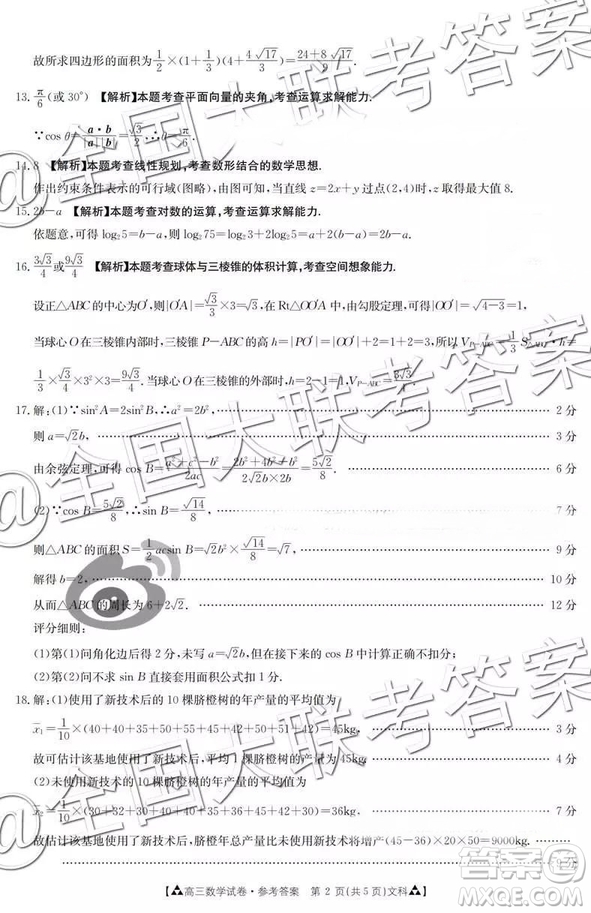 故所求四边形的面积为1/2×(1+1/3)(4+4√17/3)=(24+8√17)/9.
13. π/6(或30°) 【解析】本题考查平面向量的夹角,考查运算求解能力.
∵cos θ=a·b/|a||b|=√3/2,∴θ=π/6.
14. 8 【解析】本题考查线性规划,考查数形结合的数学思想.
作出约束条件表示的可行域(图略),由图可知,当直线z=2x+y过点(2,4)时,z取得最大值8.
15. 2b-a 【解析】本题考查对数的运算,考查运算求解能力.
依题意,可得log₂5=b-a,则log₂75=log₂3+2log₂5=2b-a.
16. 3√3/4或9√3/4 【解析】本题考查球体与三棱锥的体积计算,考查空间想象能力.
设正△ABC的中心为O′,则|O′A|=√3/3×3=√3,在Rt△OO′A中,由勾股定理,可得|OO′|=√(4-3)=1.
当球心O在三棱锥内部时,三棱锥P-ABC的高h=|PO′|=|OO′|+2=1+2=3,所以V_{P-ABC}=1/3 S_{△ABC}·h=
1/3×√3/4×3²×3=9√3/4.当球心O在三棱锥的外部时,h=2-1=1,V_{P-ABC}=3√3/4.
17. 解:(1)∵sin²A=2sin²B,∴a²=2b², 2分
则a=√2b, 3分
由余弦定理,可得cos B=(a²+c²-b²)/2ac=(2b²+4b²-b²)/(2√2b×2b)=5√2/8. 6分
(2)∵cos B=5√2/8,∴sin B=√14/8, 7分
则△ABC的面积S=1/2 acsin B=√2b²×√14/8=√7, 9分
解得b=2, 10分
从而△ABC的周长为6+2√2. 12分
评分细则:
(1)第(1)问角化边得2分,未写a=√2b,但接下来的cos B计算正确不扣分;
(2)第(2)问不求sin B直接套用面积公式扣1分.
18. 解:(1)使用了新技术后的10棵脐橙树的年产量的平均值为
x̄₁=1/10×(40+40+35+50+55+45+50+40+51+44)=45kg, 3分
故可估计该基地使用了新技术后,平均1棵脐橙树的产量为45kg.
(2)未使用新技术的10棵脐橙树的年产量的平均值为
x̄₂=1/10×(30+32+30+40+40+35+36+45+42+30)=36kg, 7分
故估计该基地使用了新技术后,脐橙年总产量比未使用新技术将增产(45-36)×20×50=9000kg.
【高三数学试卷·参考答案 第2页(共5页)文科】
@全国大联考答案
@全国大联考答案